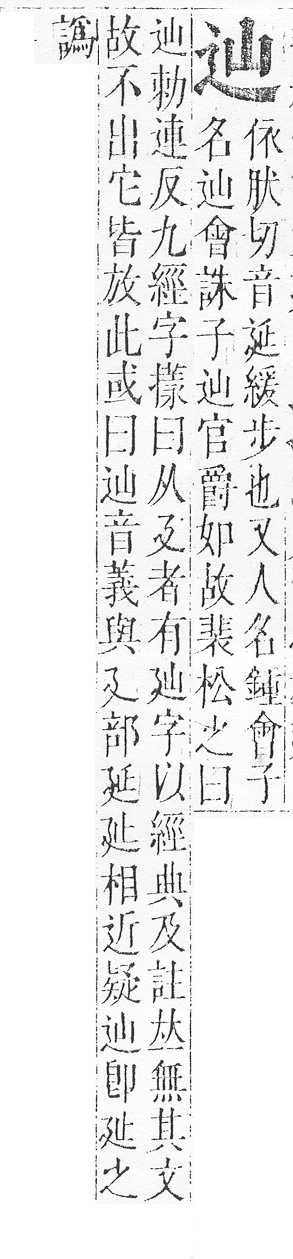 辿
依肰切音延緩步也又人名鍾會子
名辿會誅子辿官爵如故裴松之曰
辿勅連反九經字㨾曰从廴者有㢟字以經典及註𠀤無其文
故不出它皆放此或曰辿音義與廴部延㢟相近疑辿卽㢟之
譌